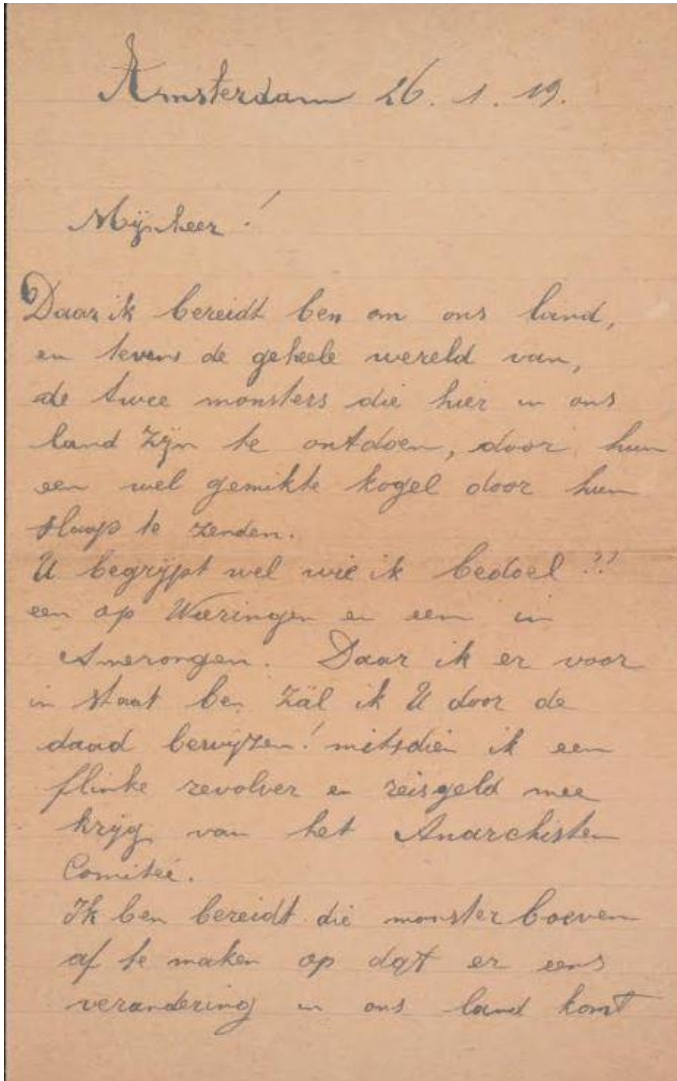 Amsterdam 26. 1. 19.
Mijnheer!
Daar ik bereidt ben om ons land,
en tevens de geheele wereld van,
de twee monsters die hier in ons
land zijn te ontdoen, door hun
een wel gemikte kogel door hun
slaap te zenden.
U begrijpt wel wie ik bedoel??
een op Wieringen en een in
Amerongen. Daar ik er voor
in staat ben zal ik U door de
daad bewijzen! mitsdien ik een
flinke revolver en reisgeld mee
krijg van het Anarchisten
Comiteé.
Ik ben bereidt die monster boeven
af te maken op dat er eens
verandering in ons land komt